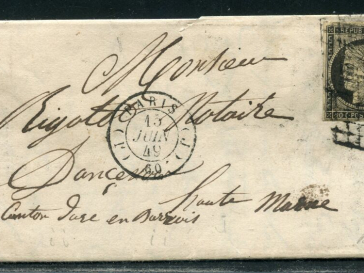 Monsieur
PARIS
Rigollot Notaire
15
JUIN
49
(60)
Haute Marne
Canton
en Barrois
REPUB